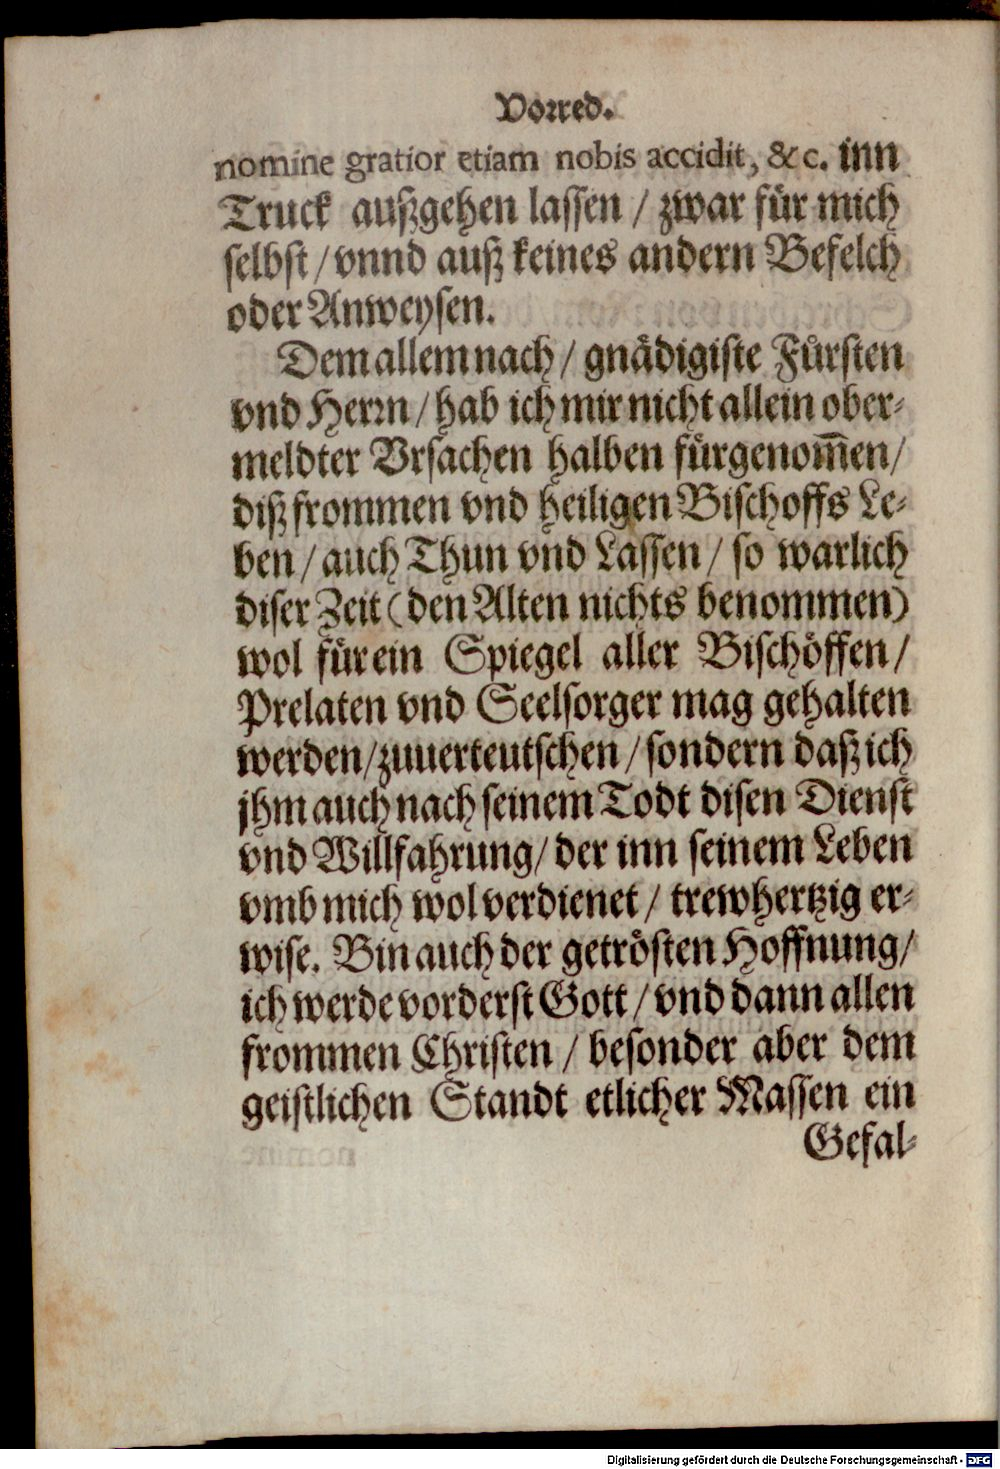 Vorred.
nomine gratior etiam nobis accidit, &c. inn
Truck außgehen lassen / zwar für mich
selbst / vnnd auß keines andern Befelch
oder Anweysen.
Dem allem nach / gnädigiste Fürsten
vnd Herrn / hab ich mir nicht allein ober-
meldter Vrsachen halben fürgenom̄en /
diß frommen vnd heiligen Bischoffs Le-
ben / auch Thun vnd Lassen / so warlich
diser Zeit (den Alten nichts benommen)
wol für ein Spiegel aller Bischöffen /
Prelaten vnd Seelsorger mag gehalten
werden / zuuerteutschen / sondern daß ich
jhm auch nach seinem Todt disen Dienst
vnd Willfahrung / der inn seinem Leben
vmb mich wol verdienet / trewhertzig er-
wise. Bin auch der getrösten Hoffnung /
ich werde vorderst Gott / vnd dann allen
frommen Christen / besonder aber dem
geistlichen Standt etlicher Massen ein
Gefal-
Digitalisierung gefördert durch die Deutsche Forschungsgemeinschaft - DFG